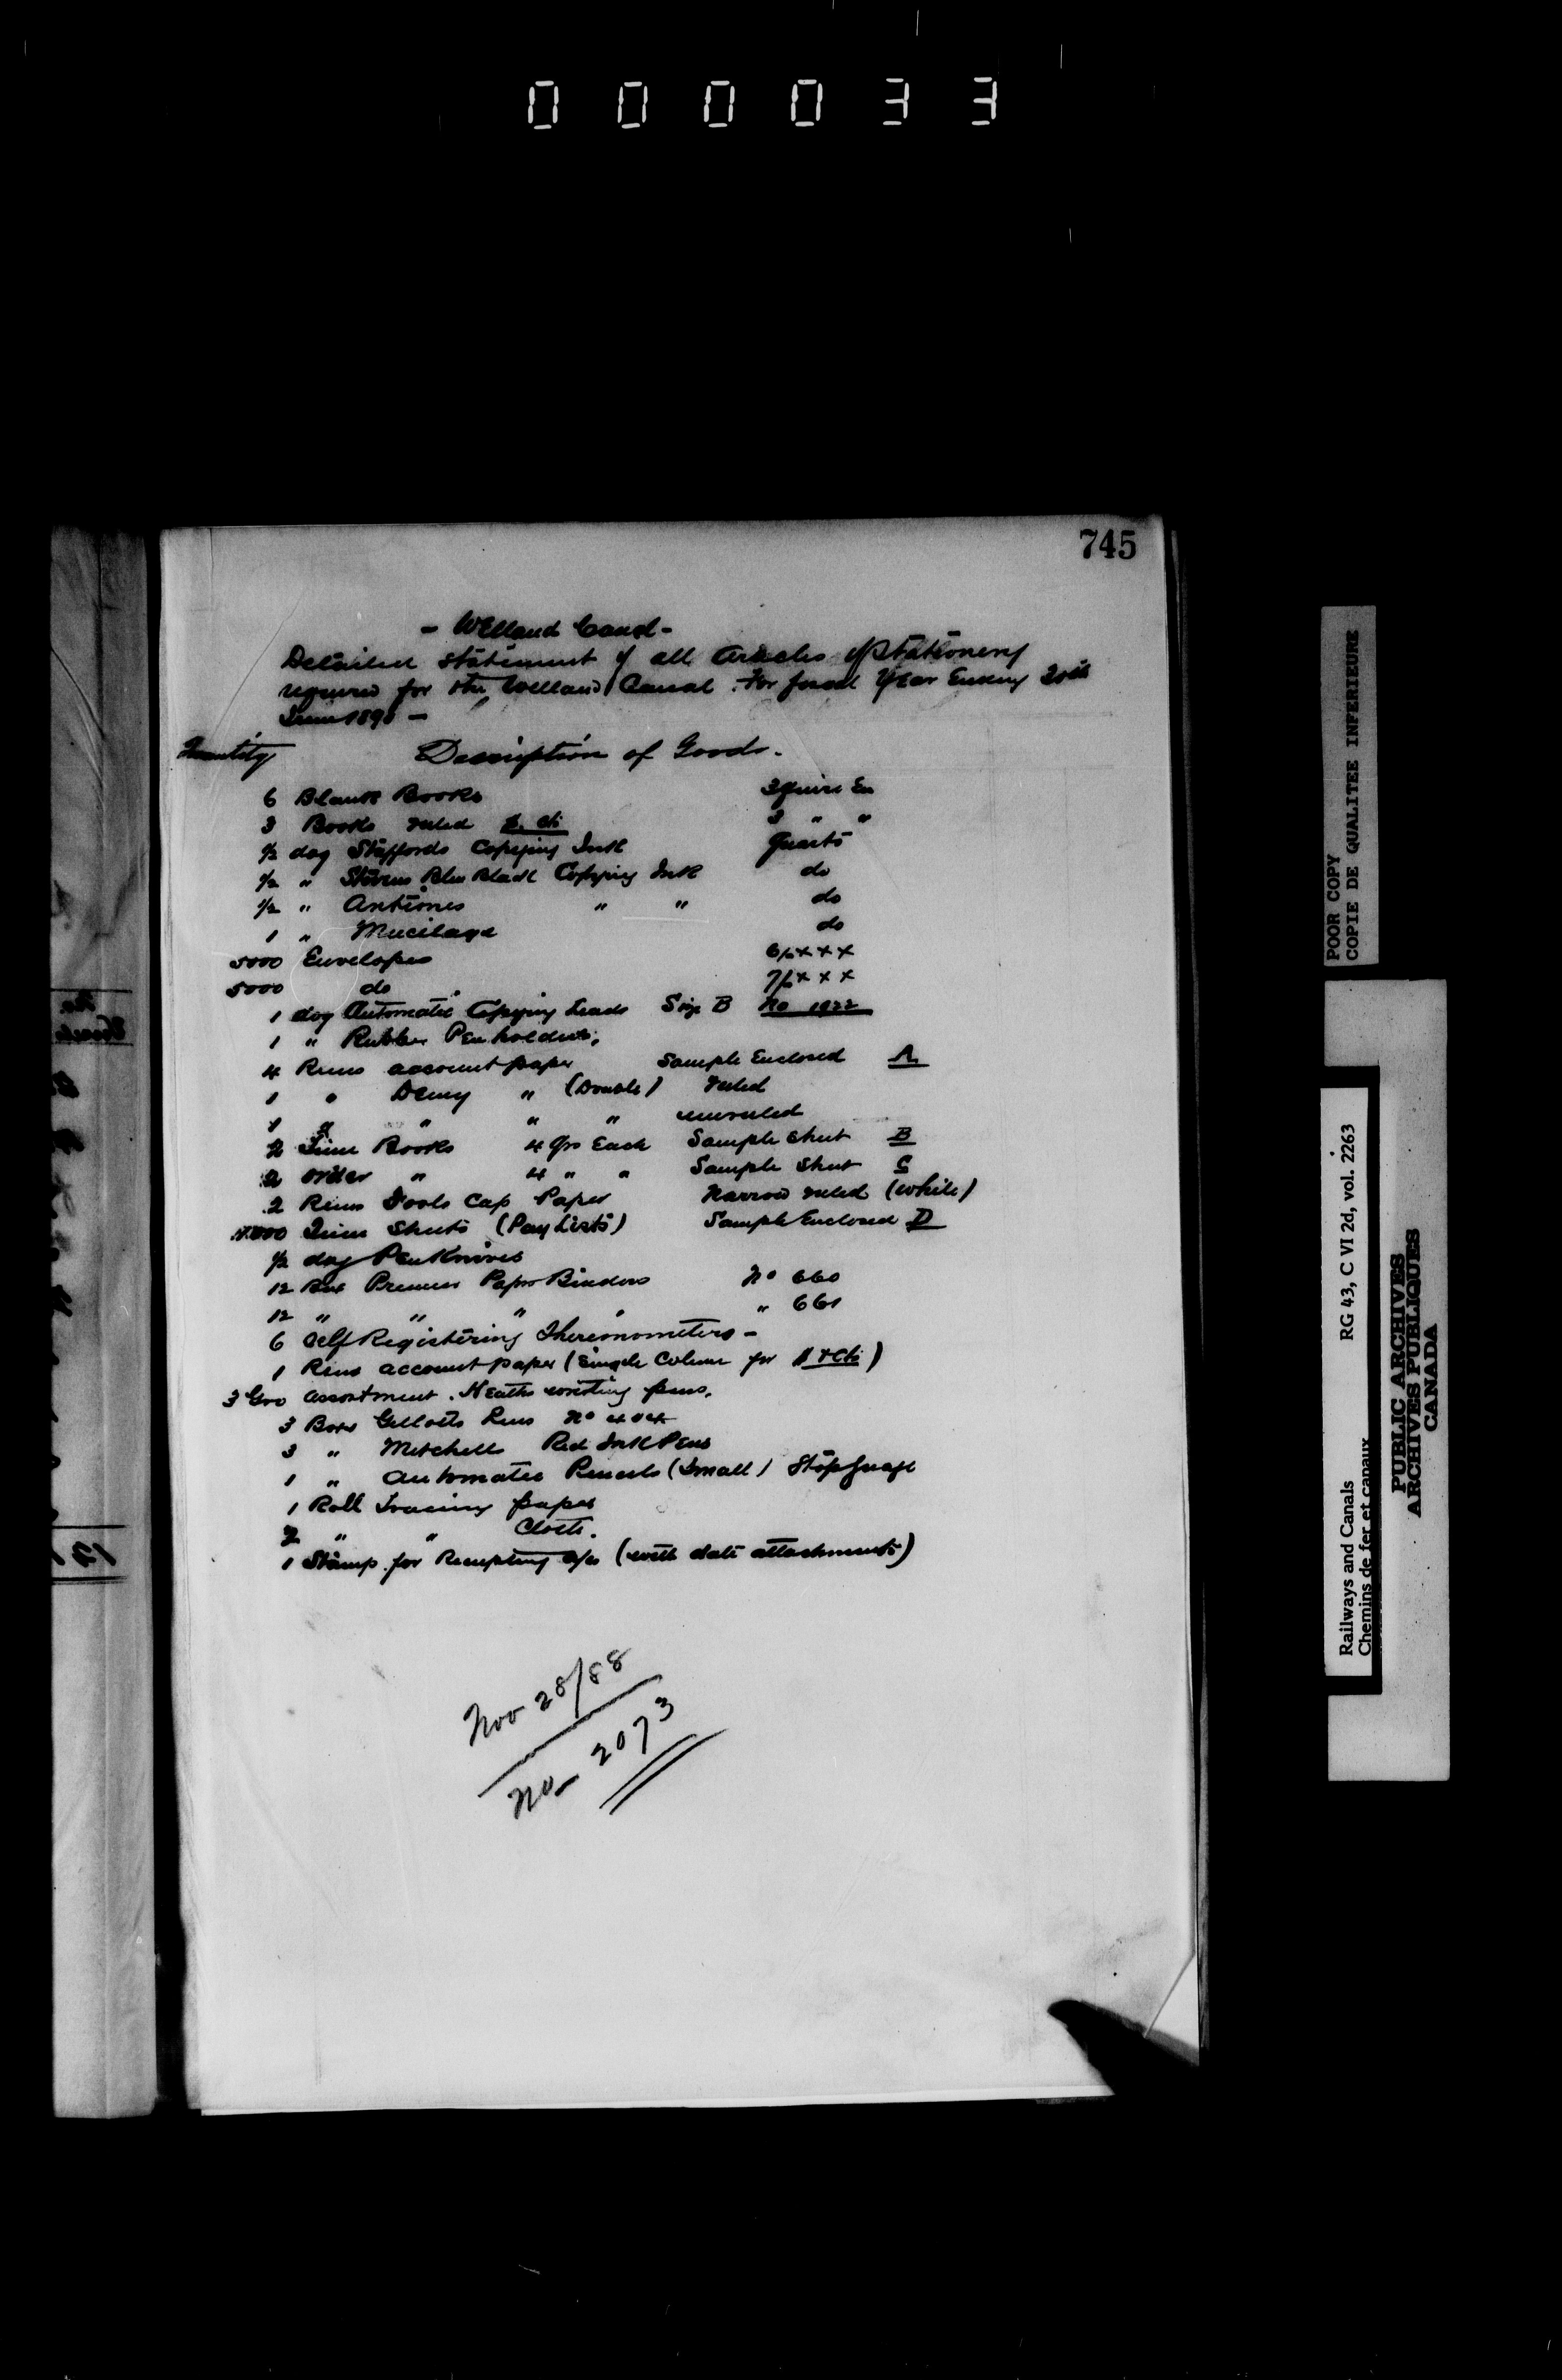 000033
745
- Welland Canal -
Detailed Statement of all Articles of Stationery
required for the Welland Canal. For fiscal Year Ending 30th
June 1890 -
Quantity Description of Goods.
6 Blank Books 3 quire Ea
3 Books ruled 3 " "
1/2 doz Staffords Copying Ink Quarts
1/2 " Stevens Blue Black Copying Ink do
1/2 " Antoines " " do
1 " Mucilage do
5000 Envelopes 6/ xxx
5000 do 7/ xxx
1 doz Automatic Copying Leads Size B No 1922
1 " Rubber Penholders,
4 Rims account paper Sample Enclosed A
1 " Demy " (Double) ruled
1 " " " " unruled
2 Time Books 4 qrs Each Sample Sheet B
2 order " 4 " " Sample Sheet C
2 Rims Fools Cap Paper Narrow ruled (white)
Time Sheets (Pay Lists) Sample Enclosed D
1/2 doz Pen Knives
12 Box Premier Paper Binders No 660
12 " " " " " 661
6 Self Registering Thermometers -
1 Rim account paper (Single Column for )
3 Gro assortment. Heaths writing pens,
3 Boxes Gillotts Pens No 404
3 " Mitchells Red Ink Pens
1 " Automatic Pencils (Small) Stop Guage
1 Roll Tracing paper
2 " " Cloth.
1 Stamp for Receipting a/cs (with date attachments)
Nov 28/88
No. 2073
POOR COPY
COPIE DE QUALITEE INFERIEURE
Railways and Canals RG 43, C VI 2d, vol. 2263
Chemins de fer et canaux
PUBLIC ARCHIVES
ARCHIVES PUBLIQUES
CANADA